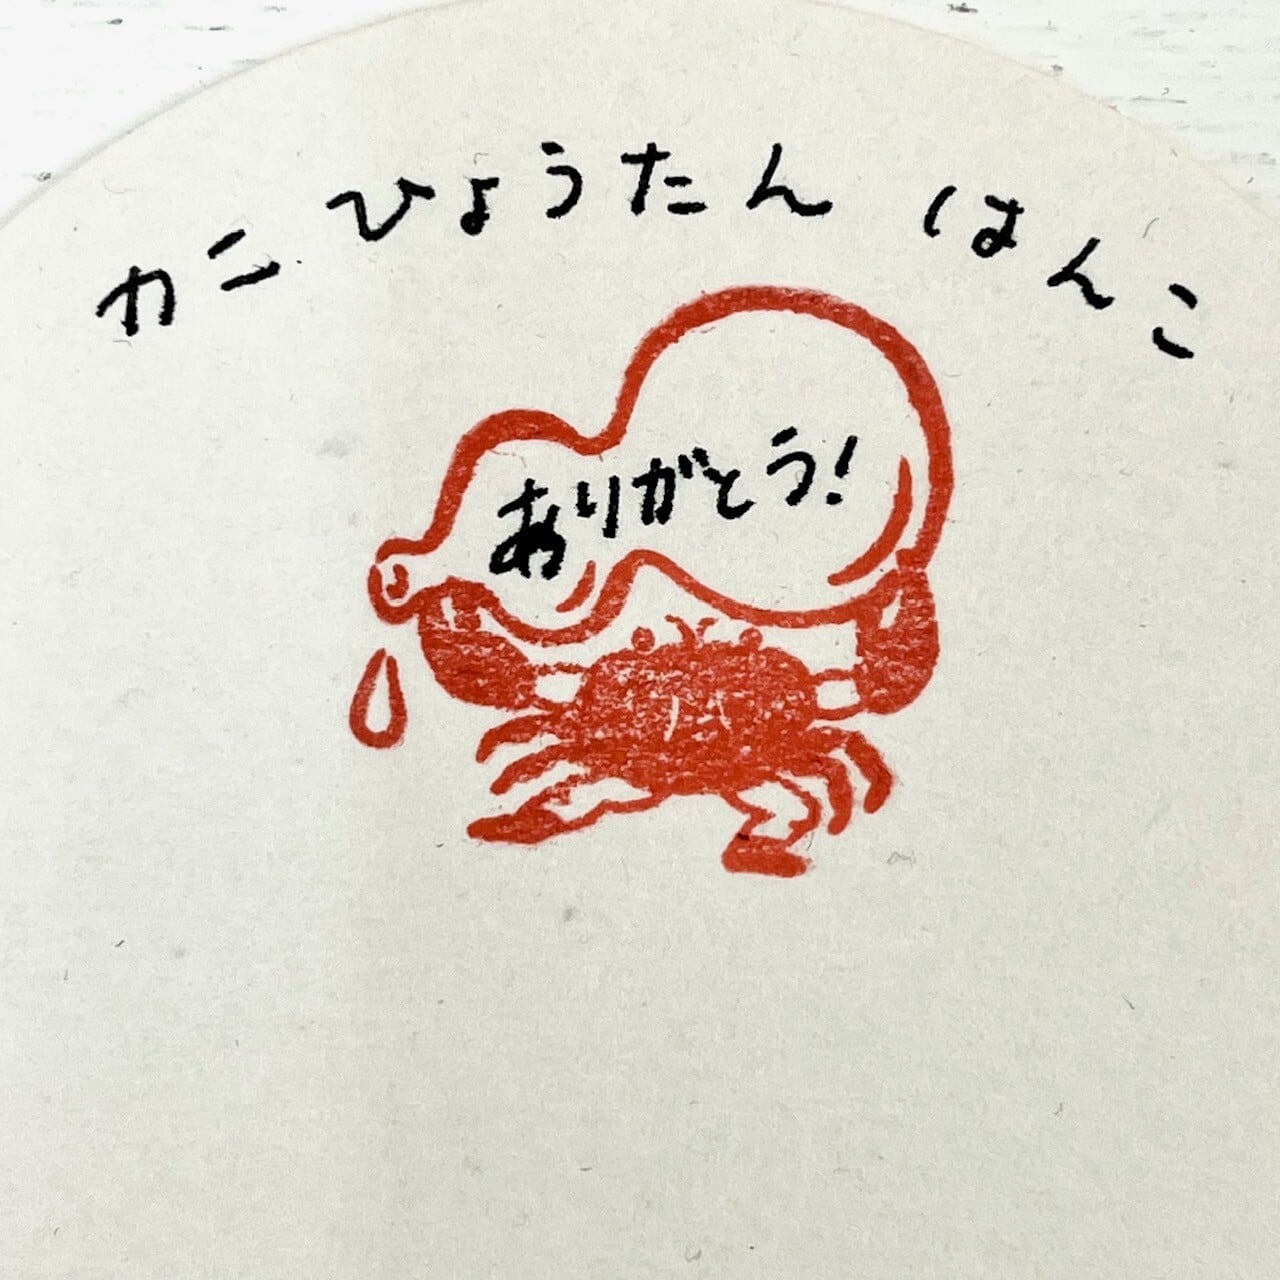 カニ ひょうたん はんこ
ありがとう!